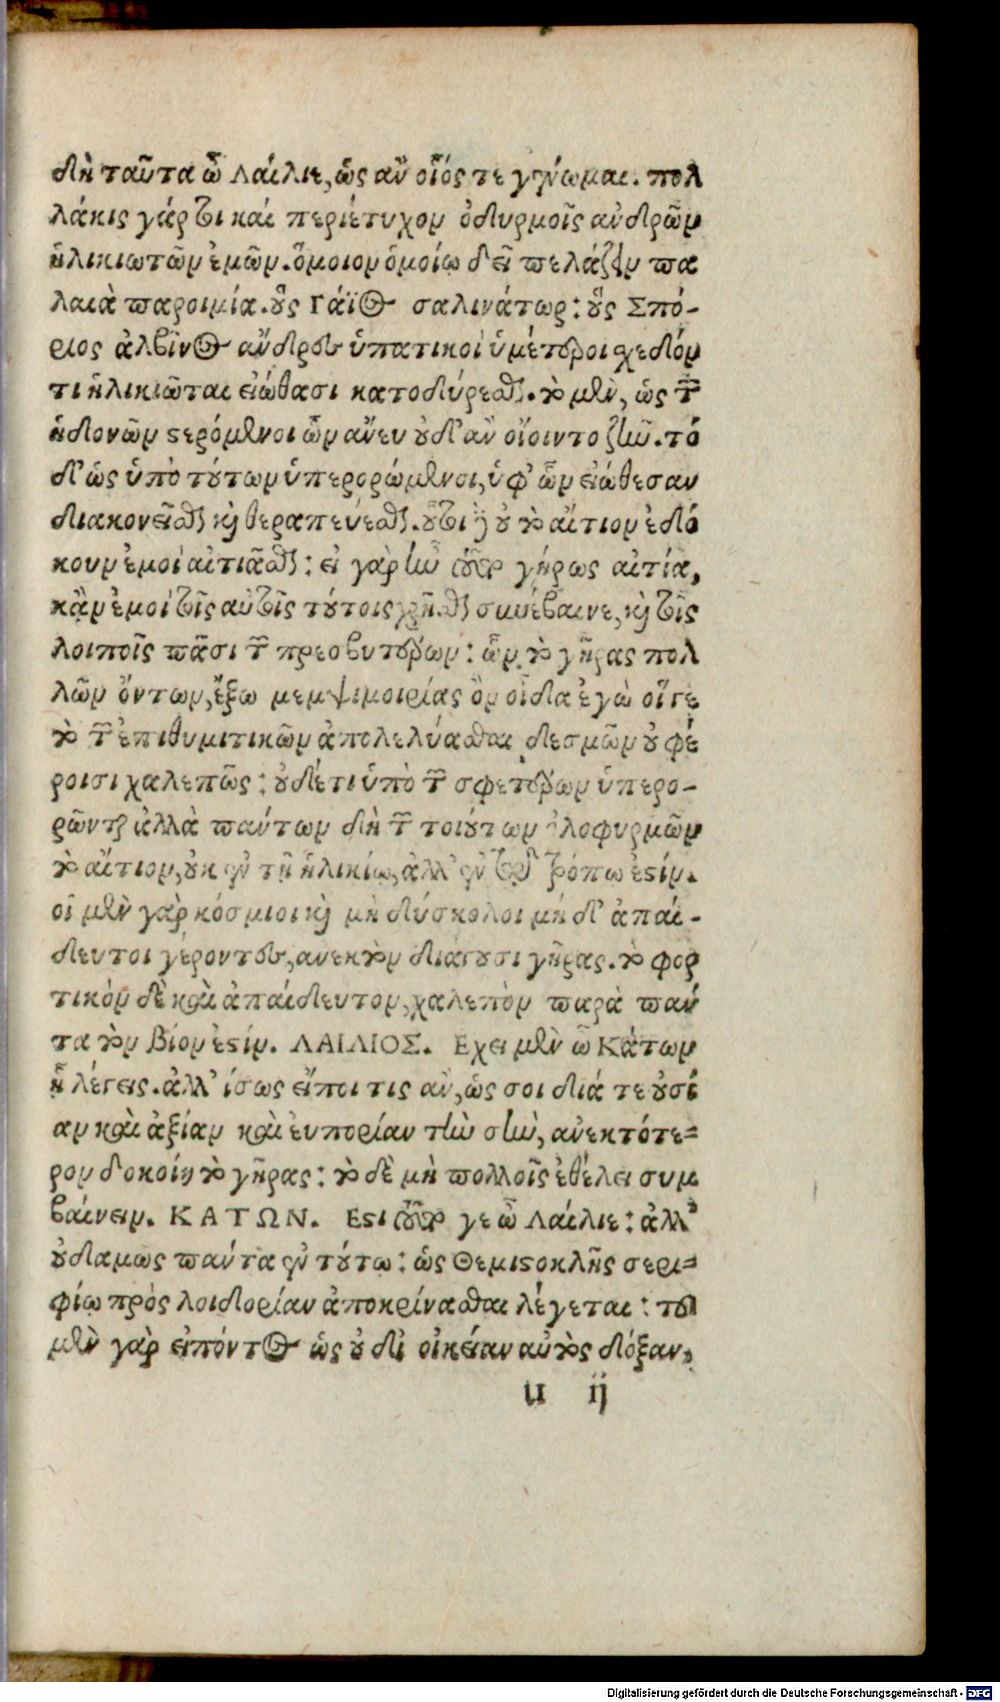 δὴ ταῦτα ὦ Λαίλιε, ὡς ἂν οἷός τε γένωμαι. πολ
λάκις γάρ τοι καὶ περιέτυχον ὀδυρμοῖς ἀνδρῶν
ἡλικιωτῶν ἐμῶν. ὅμοιον ὁμοίῳ δεῖ πελάζειν πα
λαιὰ παροιμία. οὓς Γάϊος σαλινάτωρ: οὓς Σπό-
ριος ἀλβῖνος ἄνδρες ὑπατικοὶ ὑμέτεροι σχεδόν
τι ἡλικιῶται εἰώθασι κατοδύρεσθαι. τὸ μὲν, ὡς τῶν
ἡδονῶν στερόμενοι ὧν ἄνευ οὐδ' ἂν οἴοιντο ζῆν. τό
δ' ὡς ὑπὸ τούτων ὑπερορώμενοι, ὑφ' ὧν εἰώθεσαν
διακονεῖσθαι καὶ θεραπεύεσθαι. οὗτοι δὲ οὐ τὸ αἴτιον ἐδό
κουν ἐμοὶ αἰτιᾶσθαι: εἰ γὰρ ἦν τοῦτο γήρως αἰτία,
κἂν ἐμοὶ τοῖς αὐτοῖς τούτοις χρῆσθαι συνέβαινε, καὶ τοῖς
λοιποῖς πᾶσι τῶν πρεσβυτέρων: ὧν τὸ γῆρας πολ
λῶν ὄντων, ἔξω μεμψιμοιρίας ὂν οἶδα ἐγὼ οἵγε
τὸ τῶν ἐπιθυμιτικῶν ἀπολελύσθαι δεσμῶν οὐ φέ
ροισι χαλεπῶς: οὐδέτι ὑπὸ τῶν σφετέρων ὑπερο-
ρῶνται ἀλλὰ πάντων δὴ τῶν τοιούτων ὀλοφυρμῶν
τὸ αἴτιον, οὐκ ἐν τῇ ἡλικίᾳ, ἀλλ' ἐν τῷ τρόπῳ ἐστίν.
οἱ μὲν γὰρ κόσμιοι καὶ μὴ δύσκολοι μήδ' ἀπαί-
δευτοι γέροντες, ἀνεκτὸν διάγουσι γῆρας. τὸ φορ
τικὸν δὲ καὶ ἀπαίδευτον, χαλεπὸν παρὰ πάν
τα τὸν βίον ἐστίν. ΛΑΙΛΙΟΣ. Εχει μὲν ὦ Κάτων
ᾗ λέγεις. ἀλλ' ἴσως εἴποι τις ἂν, ὡς σοι διά τε οὐσί
αν καὶ ἀξίαν καὶ εὐπορίαν τὴν σὴν, ἀνεκτότε=
ρον δοκοίη τὸ γῆρας: τὸ δὲ μὴ πολλοῖς ἐθέλει συμ
βαίνειν. ΚΑΤΩΝ. Εστι τοῦτό γε ὦ Λαίλιε: ἀλλ'
οὐδαμως πάντα ἐν τούτῳ: ὡς Θεμιστοκλῆς σερι=
φίῳ πρὸς λοιδορίαν ἀποκρίνασθαι λέγεται: τοῦ
μὲν γὰρ εἰπόντος ὡς οὐ δι' οἰκείαν αὐτὸς δόξαν,
u ij
Digitalisierung gefördert durch die Deutsche Forschungsgemeinschaft - DFG